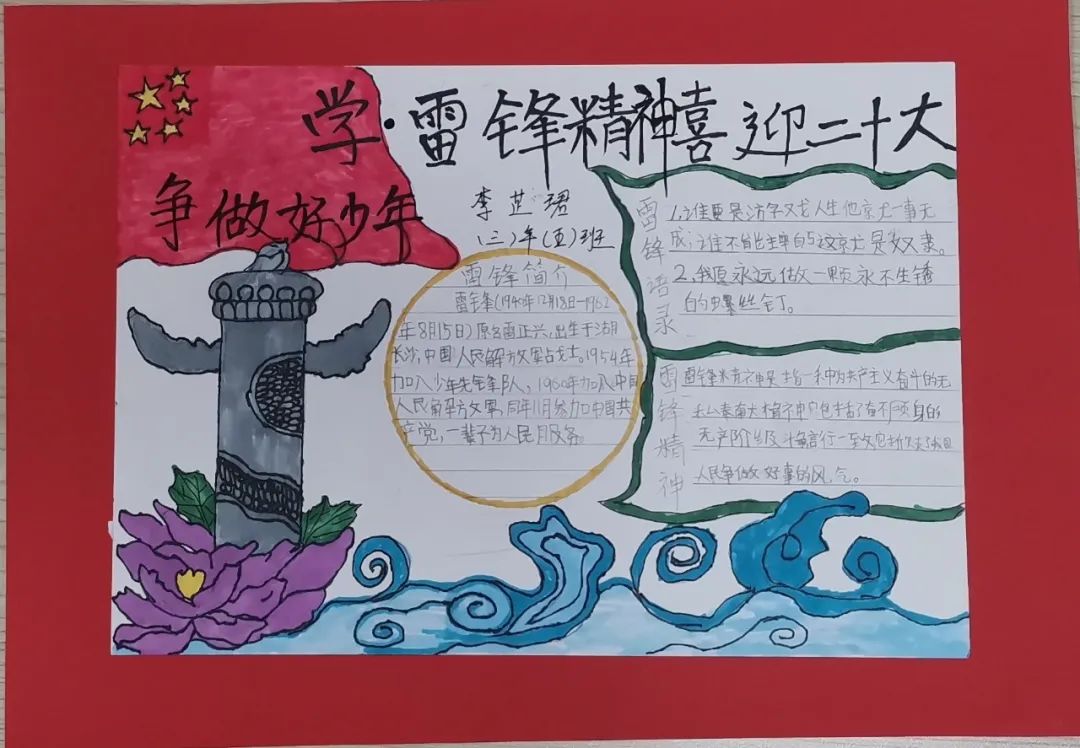 学·雷锋精神喜迎二十大
争做好少年
李芷珺
(三)年(五)班
雷锋简介
雷锋(1940年12月18日—1962
年8月15日)原名雷正兴,出生于湖
长沙,中国人民解放军战士。1954年
加入少年先锋队,1960年加入中国
人民解放军,同年11月参加中国共
产党,一辈子为人民服务。
雷锋语录
1.谁要是游字戏人生他京尤一事无
成,谁不能主宰自
是奴隶。
2.我愿永远做一颗永不生锈
的螺丝钉。
雷锋精神
雷锋精神是指一种为共产主义奋斗的无
私奉南大精神包括了奋不顾身的
无产阶级斗
言行一致
人民争做好事的风气。